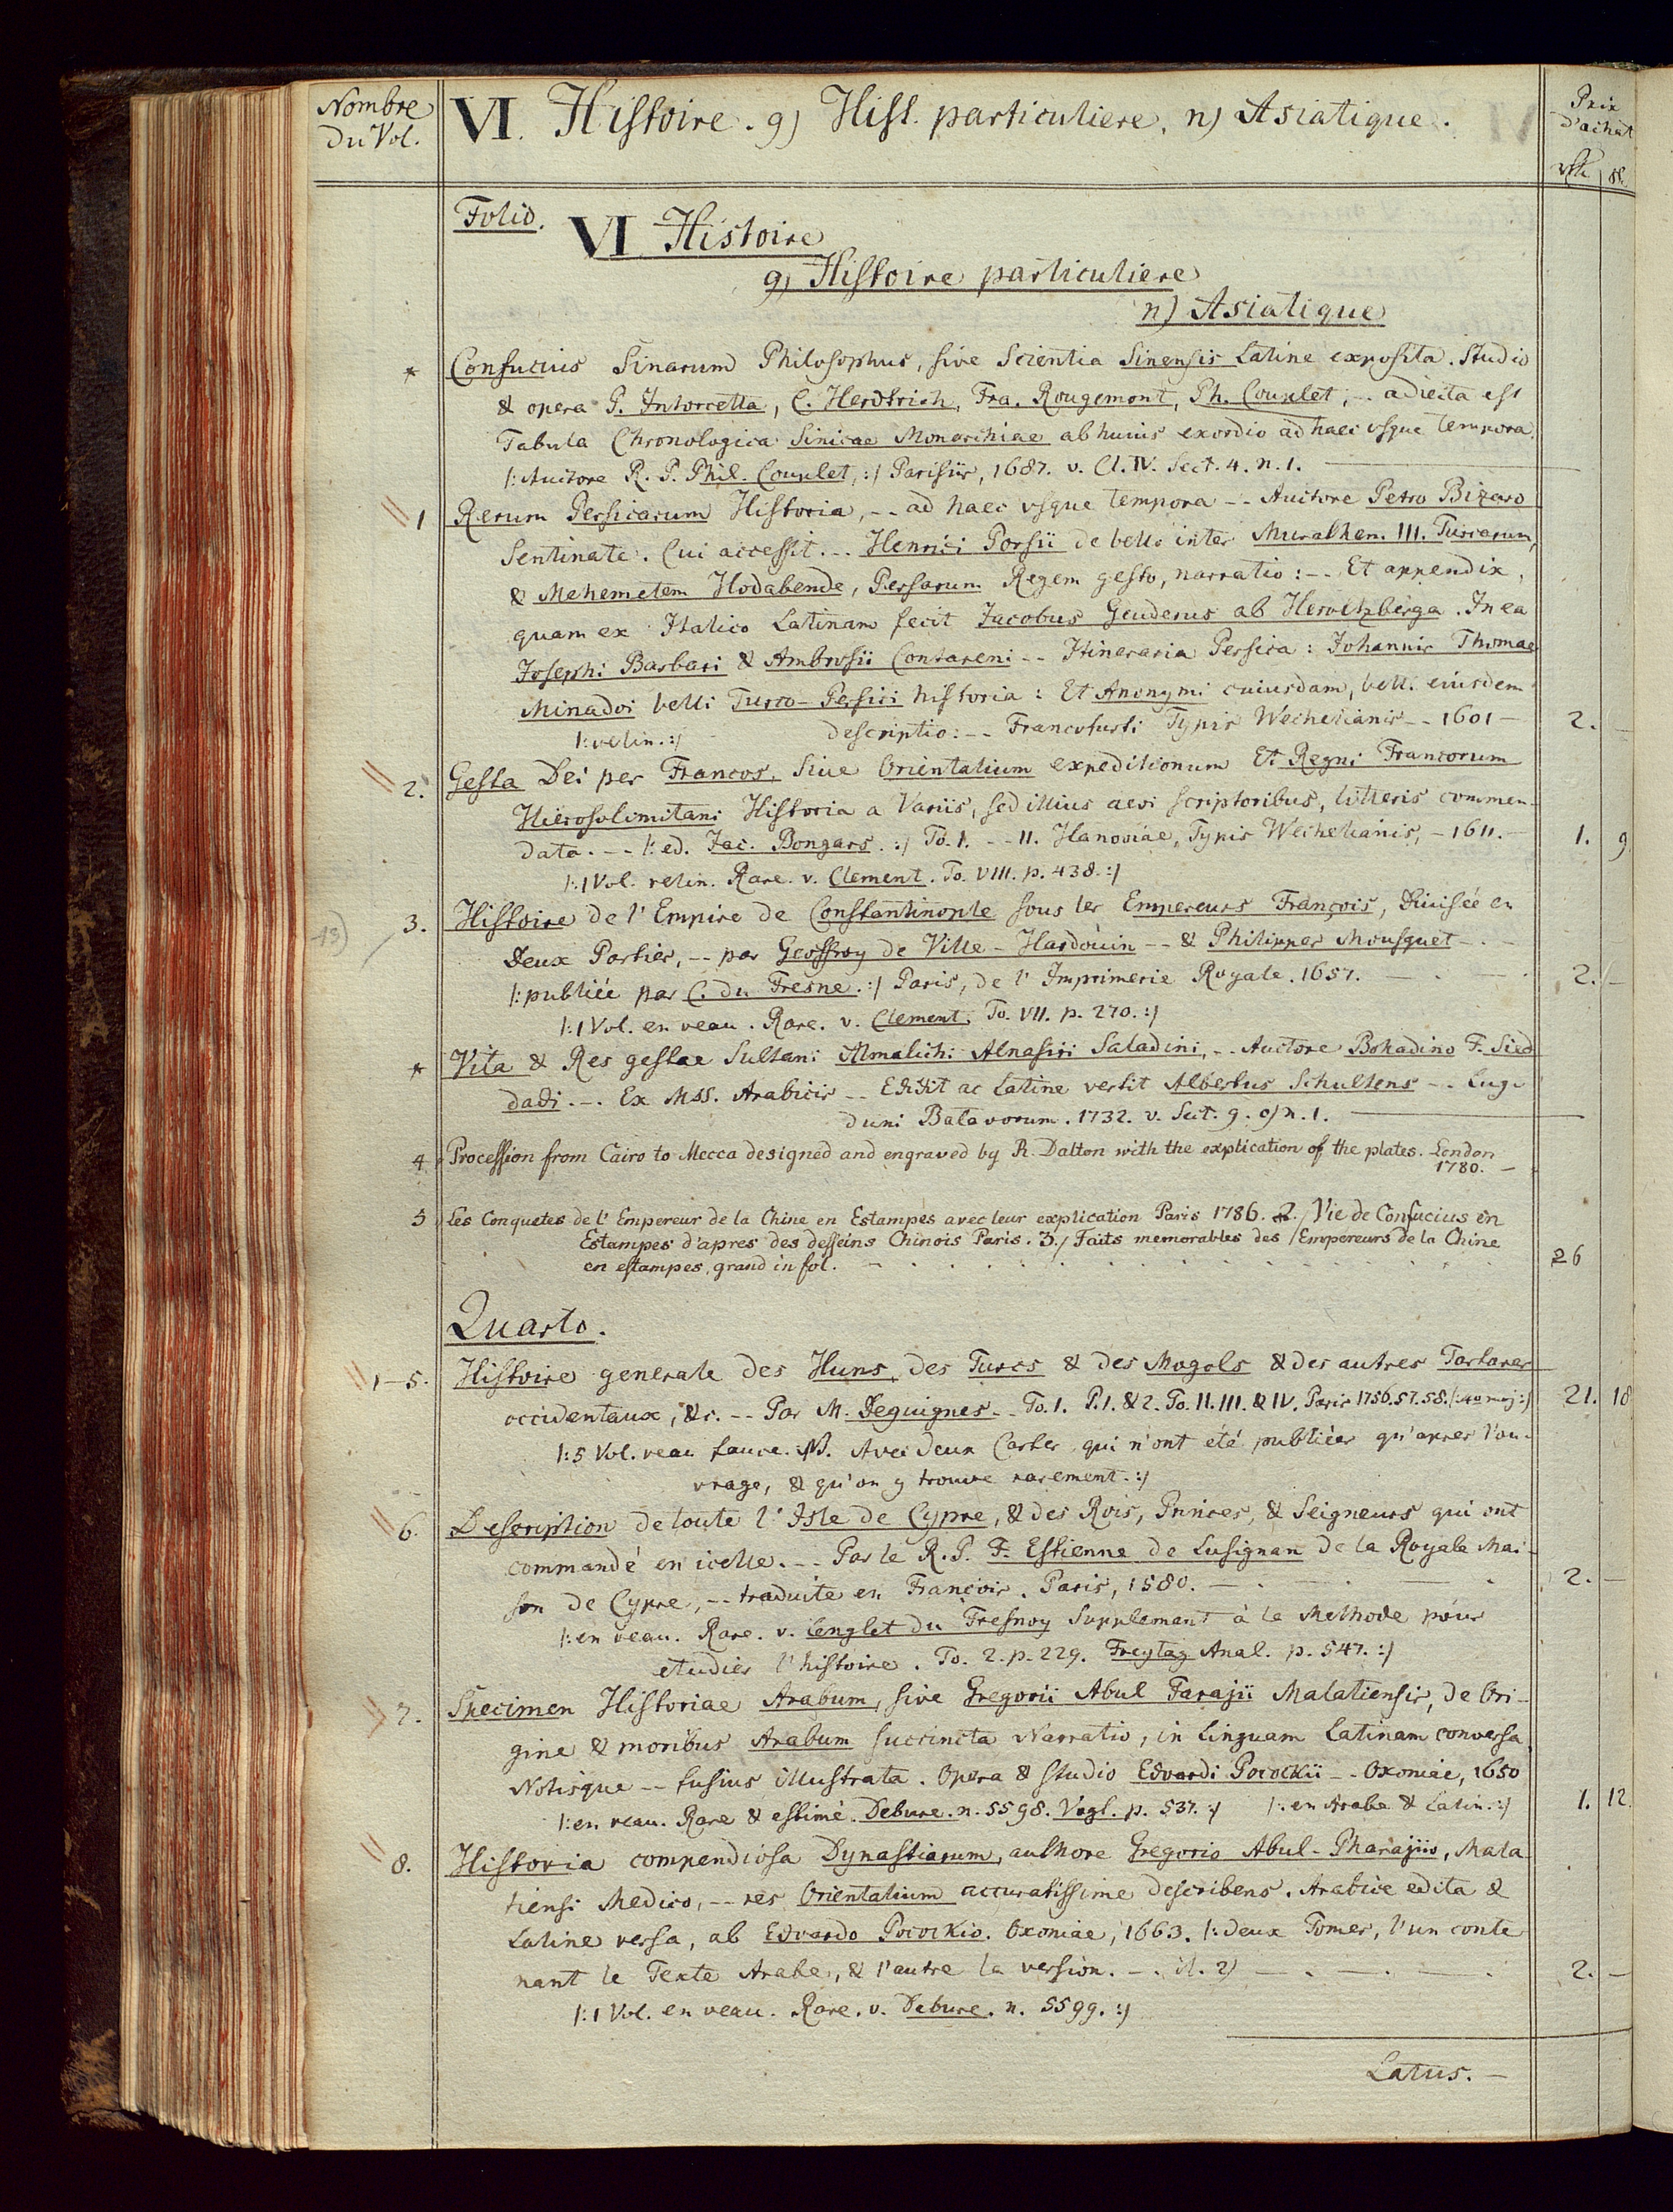 Nombre
Du Vol.
VI. Histoire. g) Hist. particuliere. n) Asiatique.
Prix
d'achat
Folio.
VI Histoire
g) Histoire particuliere
n) Asiatique
* Confucius Sinarum Philosophus, sive Scientia Sinensis Latine exposita. Studio
& opera P. Intorcetta, C. Herdtrich, Fra. Rougemont, Ph. Couplet, -- adiecta est
Tabula Chronologica Sinicae Monarchiae ab huius exordio ad haec vsque tempora.
/: Auctore R. P. Phil. Couplet, :/ Parisiis, 1687. v. Cl. IV. Sect. 4. n. 1.
1 Rerum Persicarum Historia, -- ad haec vsque tempora -- Auctore Petro Bizaro
Sentinate. Cui accessit -- Henrici Porsii de bello inter Murathem. III. Turcarum,
& Mehemetem Hodabende, Persarum Regem gesto, narratio: -- Et appendix,
quam ex Italico Latinam fecit Jacobus Geuderus ab Heroltzberga. In ea
Josephi Barbari & Ambrosii Contareni -- Itineraria Persica: Johannis Thomae
Minadoi belli Turco-Persici historia: Et Anonymi cuiusdam, belli eiusdem
/: velin. :/ descriptio: -- Francofurti Typis Wechelianis -- 1601 — 2. —
2. Gesta Dei per Francos, Siue Orientalium expeditionum Et Regni Francorum
Hierosolimitani Historia a Variis, sed illius aevi scriptoribus, litteris commen-
data. -- /: ed. Jac. Bongars. :/ To. I. -- II. Hanoviae, Typis Wechelianis, - 1611. — 1. 9
/: 1 Vol. velin. Rare. v. Clement. To. VIII. p. 438. :/
13) 3. Histoire de l'Empire de Constantinople sous les Empereurs François, Diuisée en
Deux Parties, -- par Geoffroy de Ville-Hardoüin -- & Philippes Mousquet -
/: publiée par C. du Fresne. :/ Paris, de l'Imprimerie Royale. 1657. — 2. —
/: 1 Vol. en veau. Rare. v. Clement. To. VII. p. 270. :/
* Vita & Res gestae Sultani Almalichi Alnasiri Saladini, -- Auctore Bohadino F. Sied
dadi. -- Ex Mss. Arabicis -- Edidit ac Latine vertit Albertus Schultens -- Lug-
duni Batavorum. 1732. v. Sect. 9. o) n. 1.
4 Procession from Cairo to Mecca designed and engraved by R. Dalton with the explication of the plates. London
1780. —
5 Les Conquetes de l'Empereur de la Chine en Estampes avec leur explication Paris 1786. 2./ Vie de Confucius en
Estampes d'apres des desseins Chinois Paris. 3./ Faits memorables des Empereurs de la Chine
en estampes, grand in fol. — 26
Quarto.
1-5. Histoire generale des Huns, des Turcs & des Mogols & des autres Tartares
occidentaux, &c. -- Par M. Deguignes -- To. I. P. 1. & 2. To. II. III. & IV. Paris 1756. 57. 58. /: 4to maj :/ 21. 18
/: 5 Vol. veau fauve. NB. Avec deux Cartes qui n'ont été publiées qu'apres l'ou-
vrage, & qu'on y trouve rarement. :/
6. Description de toute l'Isle de Cypre, & des Rois, Princes, & Seigneurs qui ont
commandé en icelle. -- Par le R. P. F. Estienne de Lusignan de la Royale Mai-
son de Cypre, -- traduite en François. Paris, 1580. — 2. —
/: en veau. Rare. v. Lenglet du Fresnoy Supplemant à la Methode pour
etudier l'histoire. To. 2. p. 229. Freytag Anal. p. 547. :/
7. Specimen Historiae Arabum, sive Gregorii Abul Farajii Malatiensis, de Ori-
gine & moribus Arabum succincta Narratio, in Linguam Latinam conversa,
Notisque -- fusius illustrata. Opera & studio Edvardi Pocockii -- Oxoniae, 1650
/: en veau. Rare & estimé. Debure. n. 5598. Vogt. p. 537. :/ /: en Arabe & Latin. :/ 1. 12.
8. Historia compendiosa Dynastiarum, authore Gregorio Abul-Pharajio, Mala-
tiensi Medico, -- res Orientalium accuratissime describens. Arabice edita &
Latine versa, ab Edvardo Pocockio. Oxoniae, 1663. /: deux Tomes, l'un conte
nant le Texte Arabe, & l'autre la version. — 2. —
/: 1 Vol. en veau. Rare. v. Debure. n. 5599. :/
Latus. —